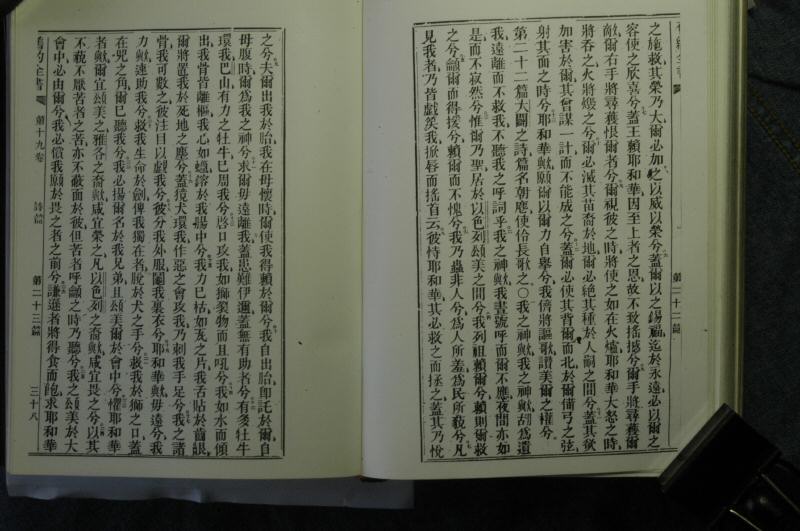 之施救其榮乃大爾必加之以威以榮兮蓋爾以之錫福迄於永遠必以爾之
容使之欣喜兮蓋王賴耶和華因至上者之恩故不致搖撼兮爾手將尋獲爾
敵爾右手將尋獲恨爾者兮爾視彼之時將使之如在火爐耶和華大怒之時
將吞之火將燬之兮爾必滅其苗裔於地爾必絕其種於人嗣之間兮蓋其欲
加害於爾其會謀一計而不能成之兮蓋爾必使其背爾而北於爾備弓之弦
射其面之時兮耶和華歟願爾以爾力自舉兮我儕將謳歌讚美爾之權兮
第二十二篇大闢之詩篇名朝應使伶長歌之〇我之神歟我之神歟胡為遺
我遠離而不救我不聽我之呼詞乎我之神歟我晝號呼而爾不應夜間亦如
是而不寂然兮惟爾乃聖居於以色列頌美之間兮我列祖賴爾兮賴則爾救
之兮籲爾而得援兮賴爾而不愧兮我乃蟲非人兮為人所羞為民所藐兮凡
見我者乃皆戲笑我撇唇而搖首云彼恃耶和華其必救之而拯之蓋其乃悅
第二十二篇
之兮夫爾出我於胎我在母懷時爾使我得賴於爾兮我自出胎卽託於爾自
母腹時爾為我之神兮求爾毋遠離我蓋患難伊邇蓋無有助者兮有多牡牛
環我巴山有力之牡牛已周我兮啓口攻我如獅裂物而且吼兮我如水而傾
出我骨皆離樞我心如蠟鎔於我腸中兮我力已枯如瓦之片我舌貼於齒齦
爾將置我於死地之塵兮蓋羣犬環我作惡之會攻我乃刺我手足兮我之諸
骨我可數之彼注目以戲我兮彼分我外服鬮我裏衣兮耶和華歟毋遠兮我
力歟速助我兮救我生命於劍俾我獨在者脫於犬之手兮救我於獅之口蓋
在兕之角爾已聽我兮我必揚爾名於我兄弟且頌美爾於會中兮懼耶和華
者歟爾宜頌美之雅各之裔歟咸宜榮之凡以色列之裔歟咸宜畏之兮以其
不藐不厭苦者之苦亦不蔽面於彼但苦者呼籲之時乃聽兮我之頌美於大
會中必由爾兮我必償我願於畏之者之前兮謙遜者將得食而飽求耶和華
舊約全書 第十九卷 詩篇 第二十三篇 三十八